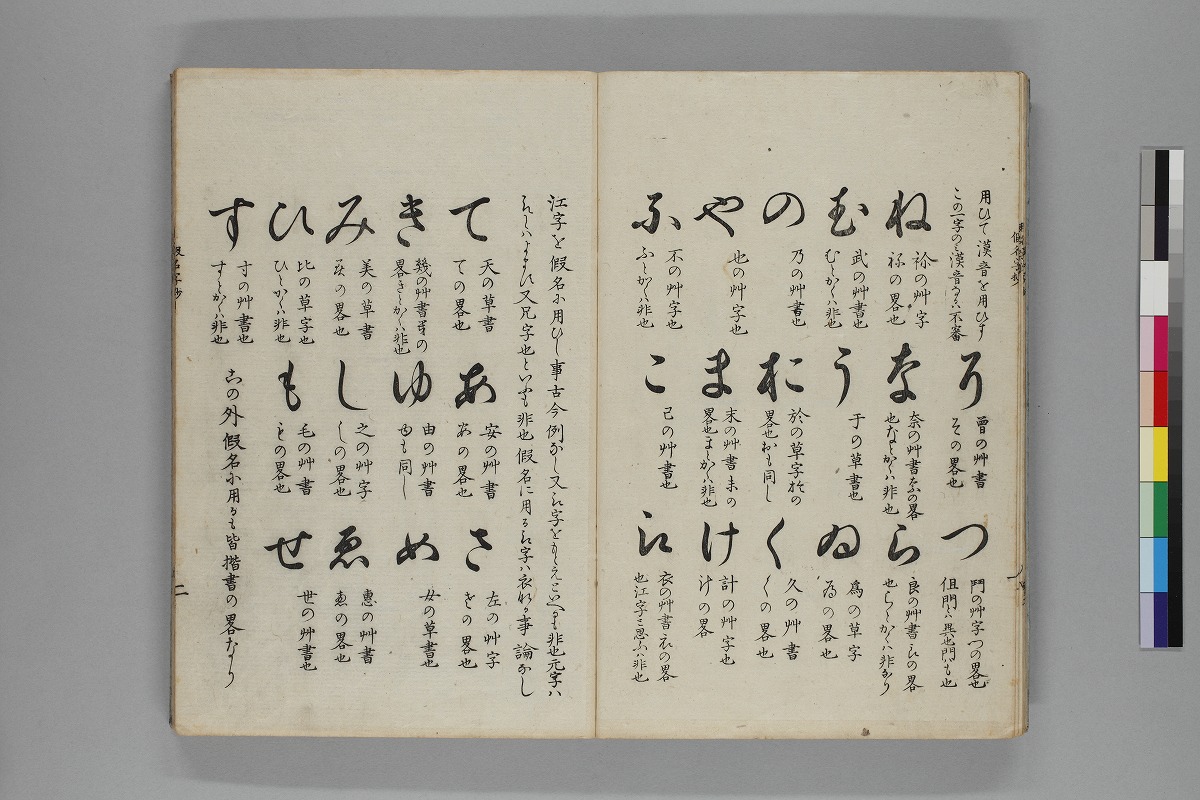 用ひて漢音を用ひす
この一字のミ漢音なるハ不審
そ
曽の艸書
そその畧也
つ
鬥の艸字つの畧也
但門とハ異也門も也
ね
祢の艸字
祢の畧也
な
奈の艸書なの畧
也なとかくハ非也
ら
良の艸書らの畧
也らとかくハ非なり
む
武の艸書也
むとかくハ非也
う
于の草書也
ゐ
為の草字
為の畧也
の
乃の艸書也
お
於の草字於の
畧也おも同し
く
久の艸書
くの畧也
や
也の艸字也
ま
末の艸書まの
畧也まとかくハ非也
け
計の艸字也
けの畧
ふ
不の艸字也
ふとかくハ非也
こ
己の艸書也
え
衣の艸書衣の畧
也江字と思ふハ非也
江字を假名に用ひし事古今例なし又え字をもえといへとも非也元字ハ
又兄字也といふも非也假名に用るえ字ハ衣なる事論なし
て
天の草書
ての畧也
あ
安の艸書
あの畧也
さ
左の艸字
さの畧也
き
幾の艸書きの
畧きとかくハ非也
ゆ
由の艸書
ゆも同し
め
女の草書也
み
美の草書
みの畧也
し
之の艸字
しの畧也
ゑ
惠の艸書
ゑの畧也
ひ
比の草字也
ひとかくハ非也
も
毛の艸書
もの畧也
せ
世の艸書也
す
寸の艸書也
すとかくハ非也
この外假名に用るも皆楷書の畧なり
假名字抄
二